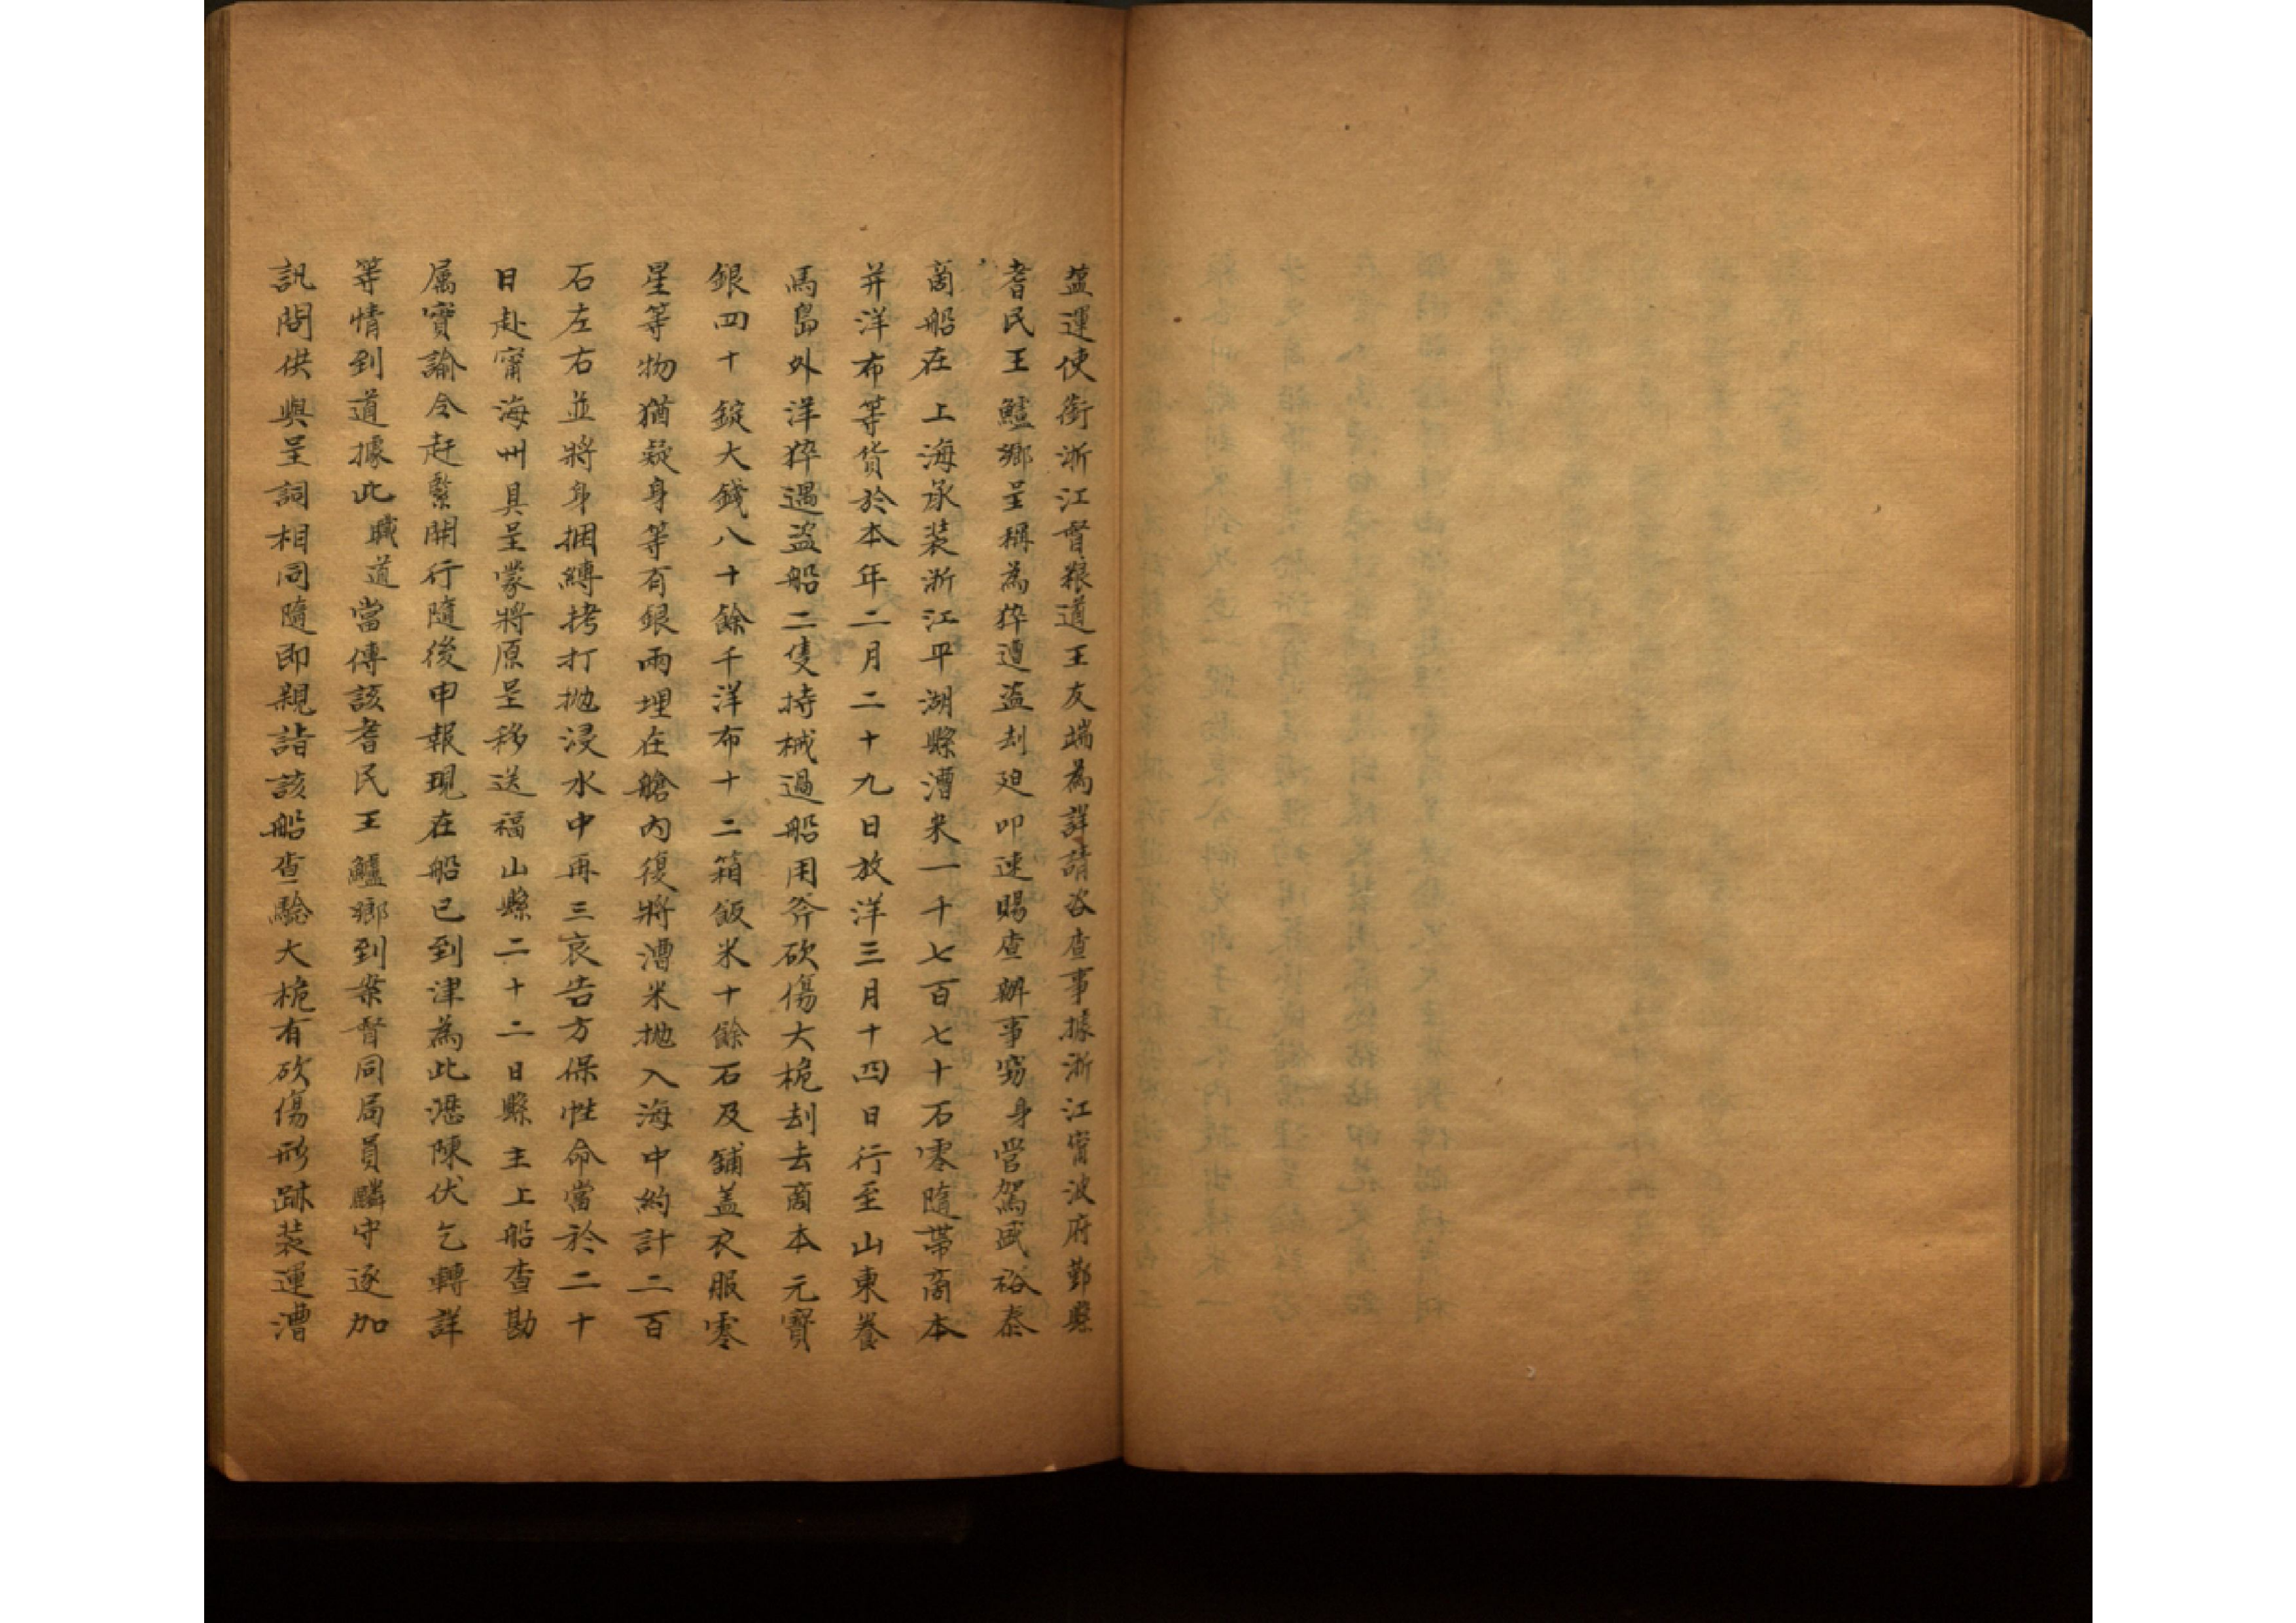 盐運使銜浙江督粮道王友端為詳請咨查事據浙江甯波府鄞縣
耆民王鱸鄉呈稱為猝遭盗刦迫叩速賜查辦事窃身營駕盛裕泰
商船在上海承装浙江平湖縣漕米一千七百七十石零隨帶商本
并洋布等貨於本年二月二十九日放洋三月十四日行至山東養
馬島外洋猝遇盗船二隻持械過船用斧砍傷大桅刦去商本元寳
銀四十錠大錢八十餘千洋布十二箱飯米十餘石及鋪盖衣服零
星等物猶疑身等有銀兩埋在艙内復將漕米抛入海中約計二百
石左右並將身捆縛拷打抛浸水中再三哀告方保性命當於二十
日赴甯海州具呈蒙將原呈移送福山縣二十二日縣主上船查勘
属實諭令赶緊開行隨後申報現在船已到津為此瀝陳伏乞轉詳
等情到道據此職道當傳該耆民王鱸鄉到案督同局員麟守逐加
訊問供與呈詞相同隨即親詣該船查驗大桅有砍傷形跡装運漕